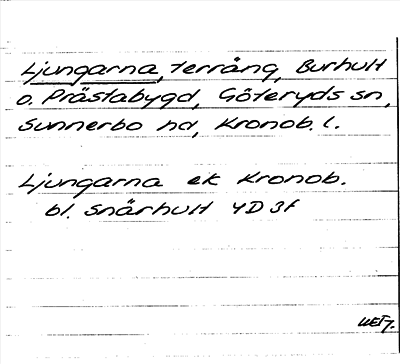 Ljungarna, terräng, Burhult
o. Prästabygd, Göteryds sn,
Sunnerbo hd, Kronob. l.
Ljungarna ek Kronob.
bl. Snärhult 4D 3f